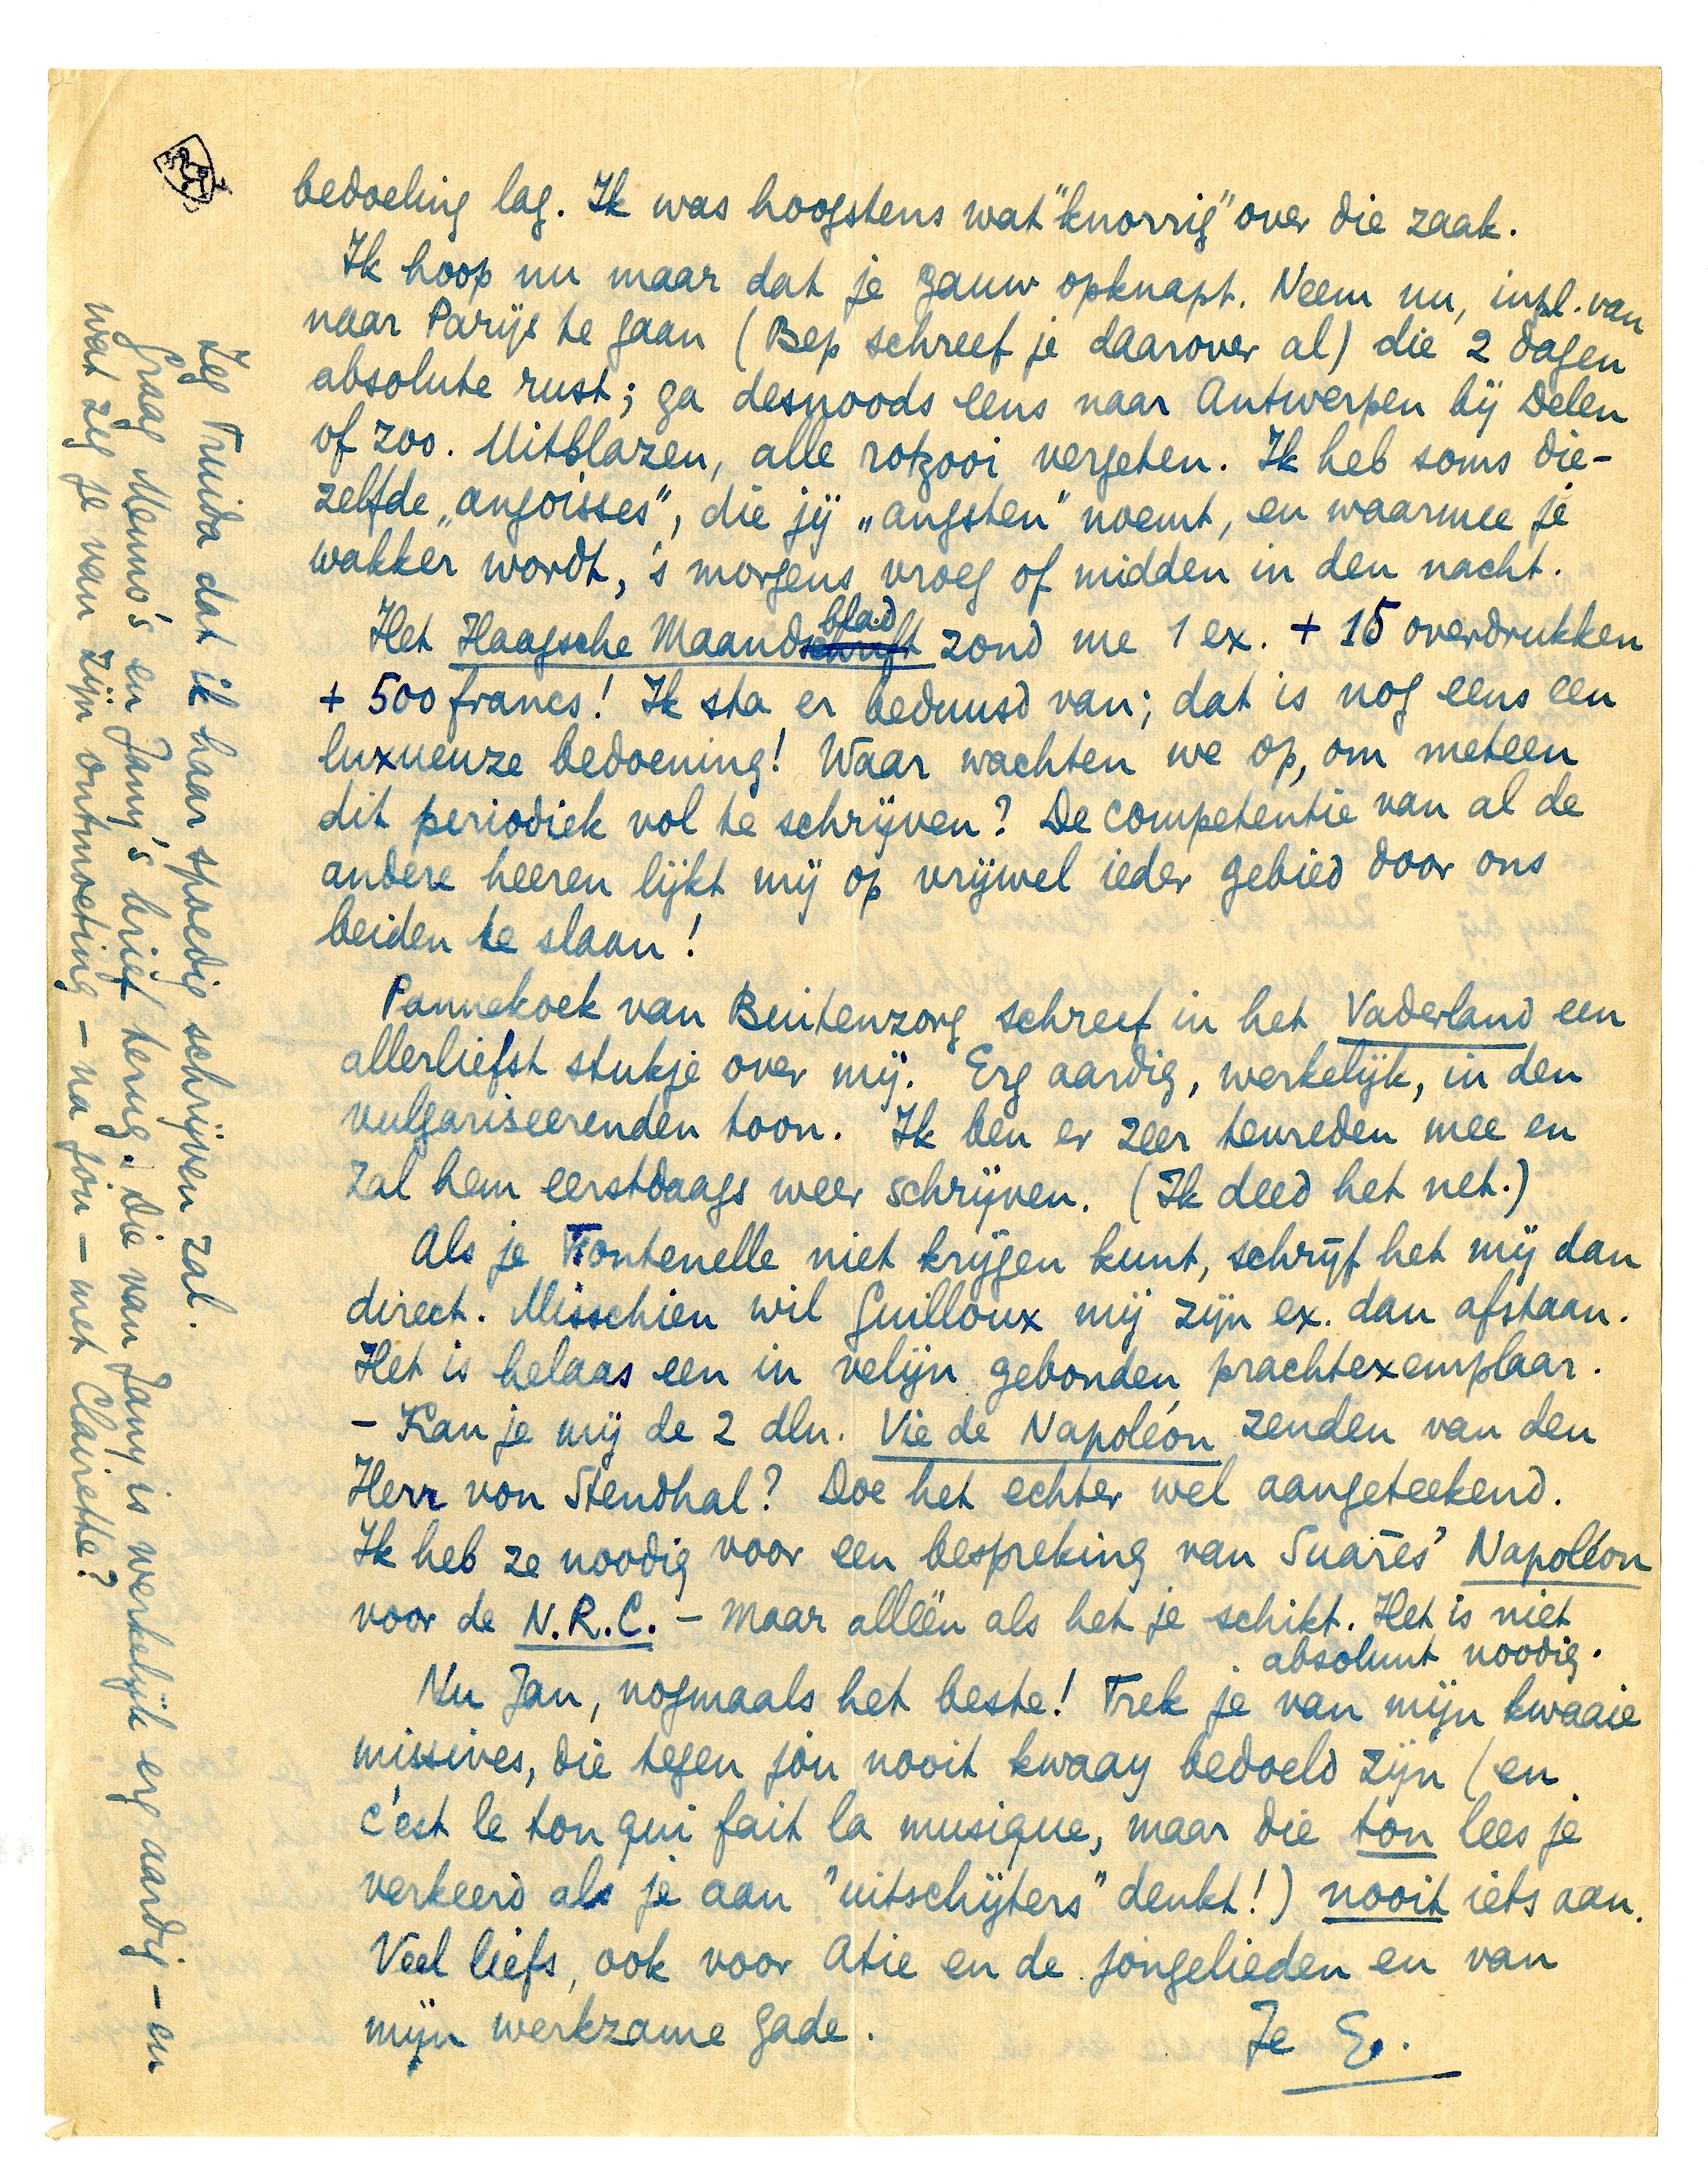 bedoeling lag. Ik was hoogstens wat "knorrig" over die zaak.
Ik hoop nu maar dat je gauw opknapt. Neem nu, inpl. van
naar Parijs te gaan (Bep schreef je daarover al) die 2 dagen
absolute rust; ga desnoods eens naar Antwerpen bij Delen
of zoo. Uitblazen, alle rotzooi vergeten. Ik heb soms die-
zelfde „angoisses", die jij „angsten" noemt, en waarmee je
wakker wordt, 's morgens vroeg of midden in den nacht.
Het Haagsche Maandschrift blad zond me 1 ex. + 15 overdrukken
+ 500 francs! Ik sta er beduusd van; dat is nog eens een
luxueuze bedoening! Waar wachten we op, om meteen
dit periodiek vol te schrijven? De competentie van al de
andere heeren lijkt mij op vrijwel ieder gebied door ons
beiden te slaan!
Pannekoek van Buitenzorg schreef in het Vaderland een
allerliefst stukje over mij. Erg aardig, werkelijk, in den
vulgariseerenden toon. Ik ben er zeer tevreden mee en
zal hem eerstdaags weer schrijven. (Ik deed het net.)
Als je Fontenelle niet krijgen kunt, schrijf het mij dan
direct. Misschien wil Guilloux mij zijn ex. dan afstaan.
Het is helaas een in velijn gebonden prachtexemplaar.
– Kan je mij de 2 dln. Vie de Napoléon zenden van den
Herr von Stendhal? Doe het echter wel aangeteekend.
Ik heb ze noodig voor een bespreking van Suarès' Napoléon
voor de N.R.C. – maar alléén als het je schikt. Het is niet
absoluut noodig.
Nu Jan, nogmaals het beste! Trek je van mijn kwaaie
missives, die tegen jou nooit kwaay bedoeld zijn (en
c'est le ton qui fait la musique, maar die ton lees je
verkeerd als je aan "uitschijters" denkt!) nooit iets aan.
Veel liefs, ook voor Atie en de jongelieden en van
mijn werkzame gade.
Je E.
Zeg Truida dat ik haar spoedig schrijven zal.
Graag Menno's en Jany's brief terug. Die van Jany is werkelijk erg aardig – en
wat zeg je van zijn ontmoeting – na jou – met Clairette?